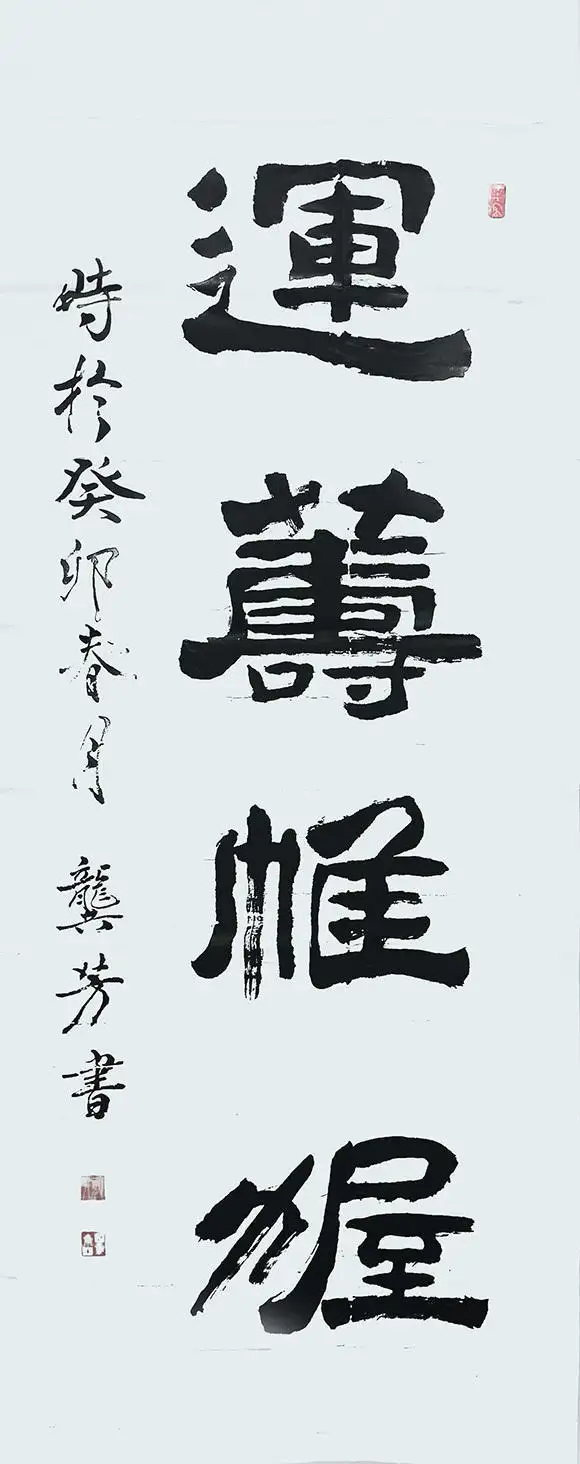 運籌帷幄
時於癸卯春月 龔芳書